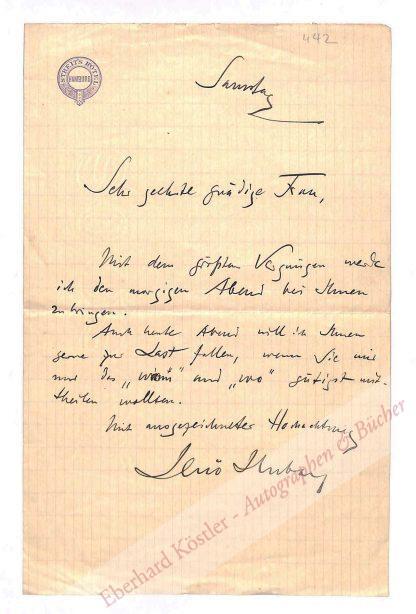 442
STREITS HOTEL
HAMBURG
Samstag
Sehr geehrte gnädige Frau,
Mit dem größten Vergnügen werde
ich den morgigen Abend bei Ihnen
zubringen.
Auch heute Abend will ich Ihnen
gerne zur Last fallen, wenn Sie mir
nur das „wann" und „wo" gütigst mit-
theilen wollten.
Mit ausgezeichneter Hochachtung
Jenö Hubay
Eberhard Köstler - Autographen & Bücher